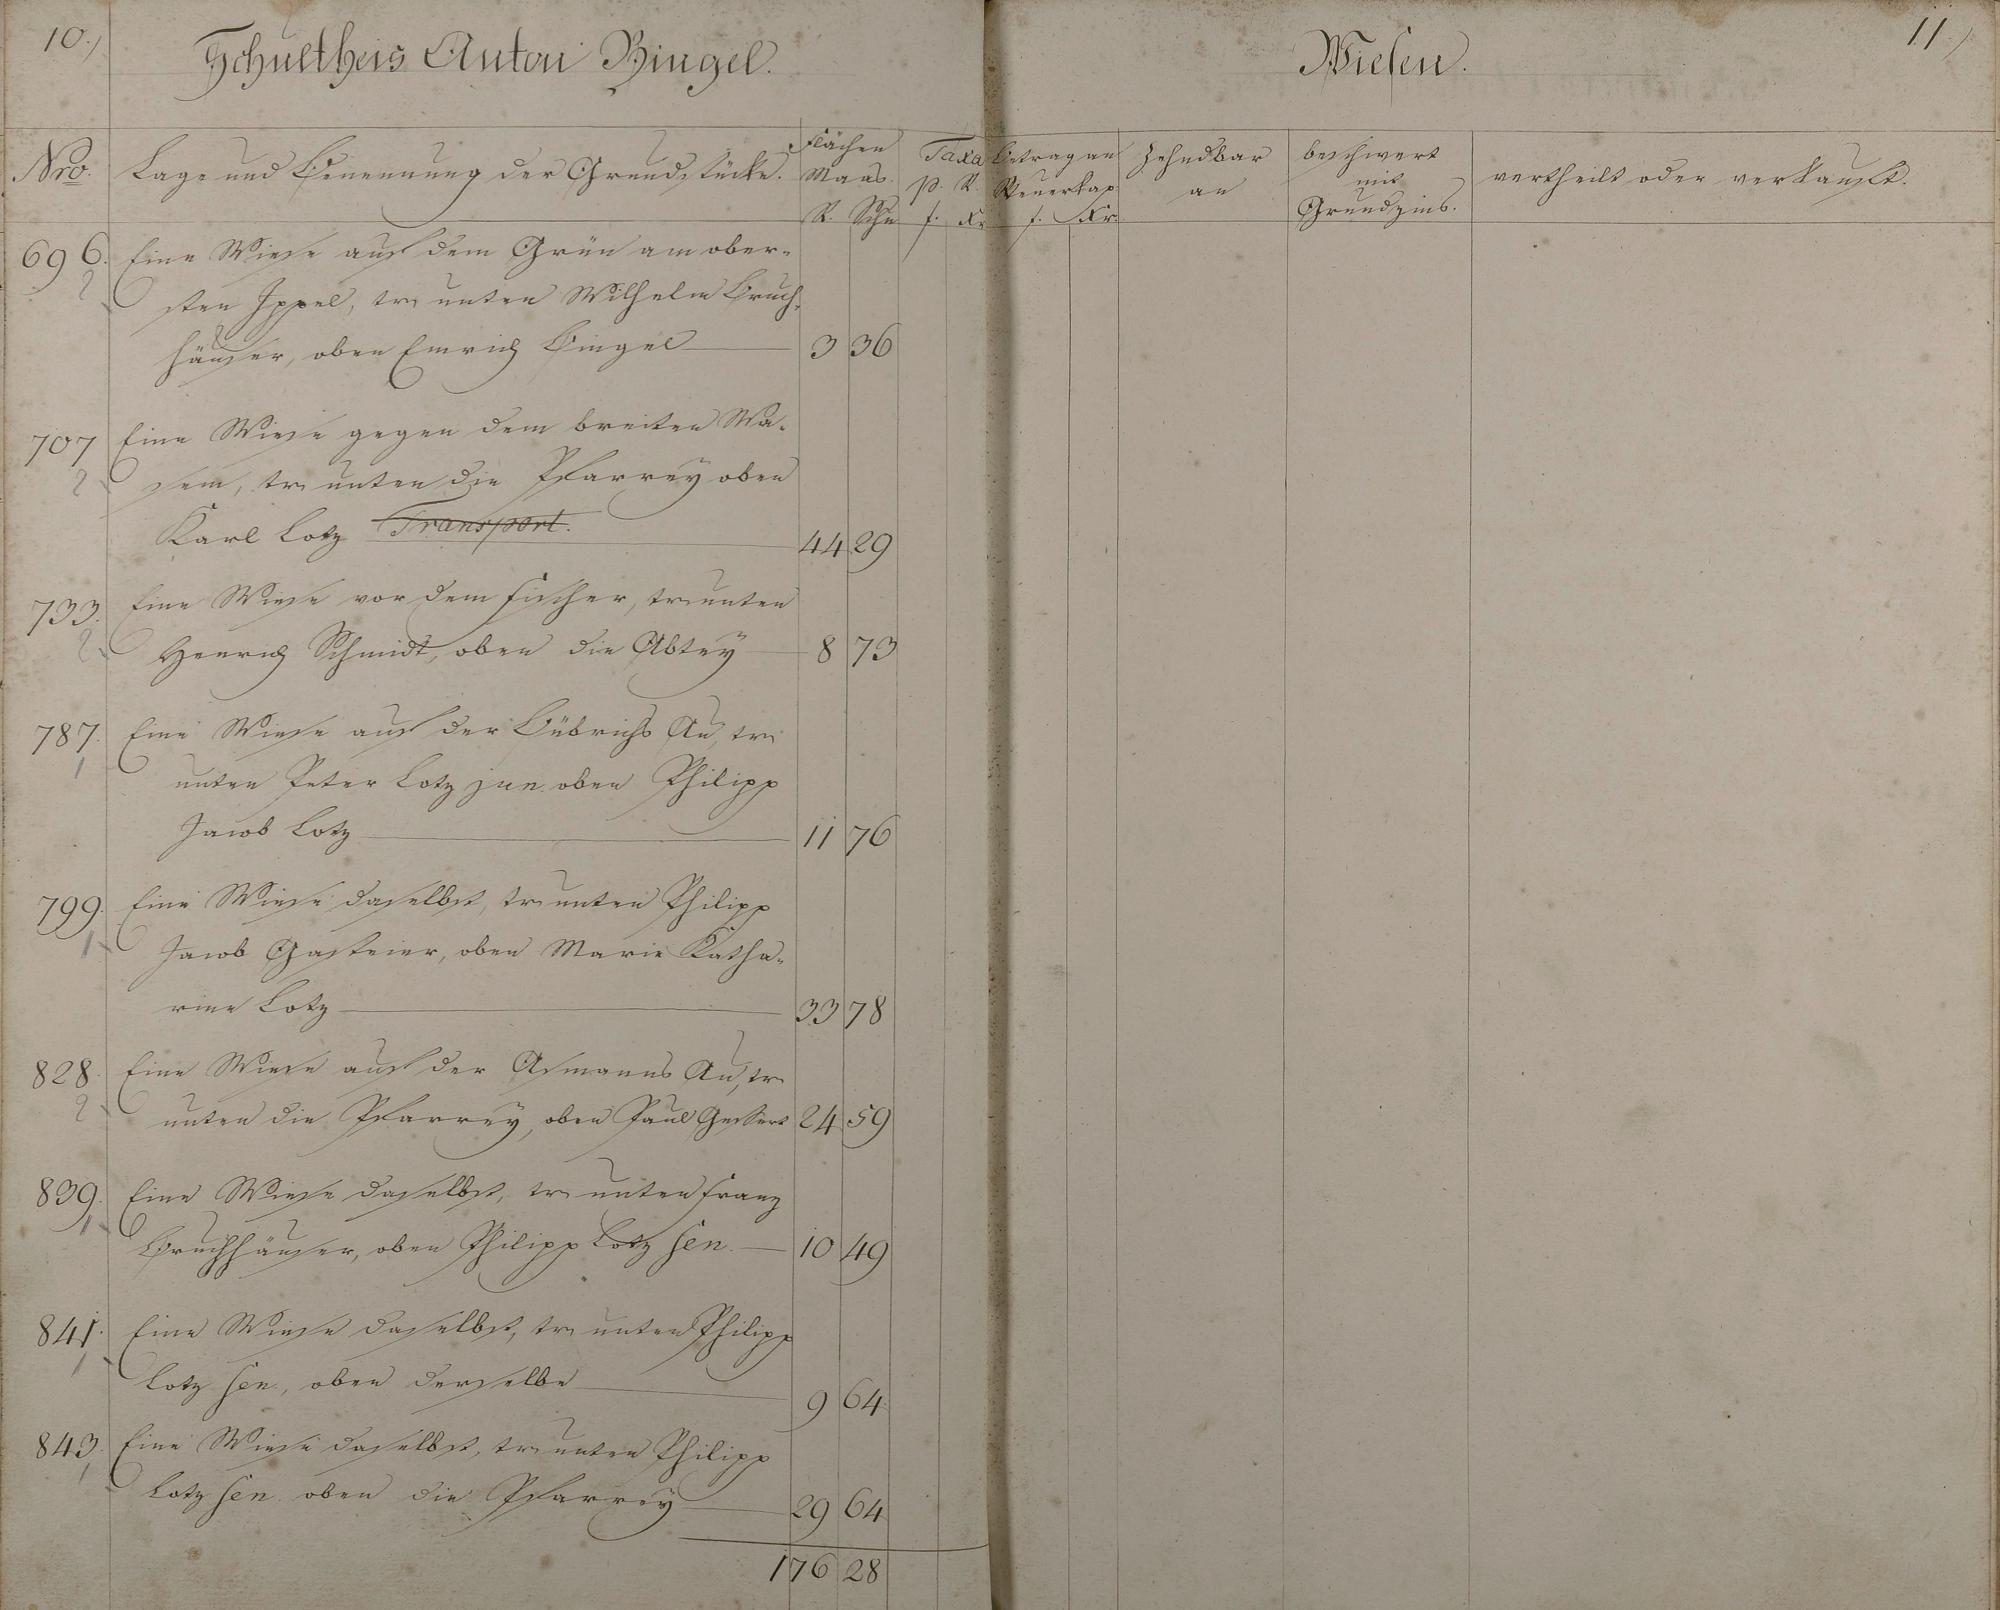 10.)
Schultheis Anton Bingel.
Nro.
Lage und Benennung der Grundstücke.
Flächen
Maas.
R. Sch
Taxa
p. R.
f. Xr
696.
2
Eine Wiese auf dem Grün am ober-
sten Ippel, tr. unten Wilhelm Bruch-
häuser, oben Emrich Bingel 3 36
707
2
Eine Wiese gegen dem breiten Wa-
sem, tr. unten die Pfarrey oben
Karl Lotz Transport. 44 29
733.
2
Eine Wiese vor dem Fischer, tr. unten
Henrich Schmidt, oben die Abtey 8 73
787.
1
Eine Wiese auf der Bübrichs Au, tr.
unten Peter Lotz jun. oben Philipp
Jacob Lotz 11 76
799.
1
Eine Wiese daselbst, tr. unten Philipp
Jacob Gasteier, oben Marie Katha-
rine Lotz 33 78
828.
2
Eine Wiese auf der Asmanns Au, tr.
unten die Pfarrey, oben Paul Gessert 24 59
839.
1
Eine Wiese daselbst, tr. unten Franz
Bruchhäuser, oben Philipp Lotz sen. 10 49
841.
1
Eine Wiese daselbst, tr. unten Philipp
Lotz sen., oben derselbe 9 64
843.
1
Eine Wiese daselbst, tr. unten Philipp
Lotz sen. oben die Pfarrey 29 64
176 28
11.)
Wiesen.
Betrag an
Steuerkap.
f. Xr.
Zehndbar
an
beschwert
mit
Grundzins.
vertheilt oder verkauft.